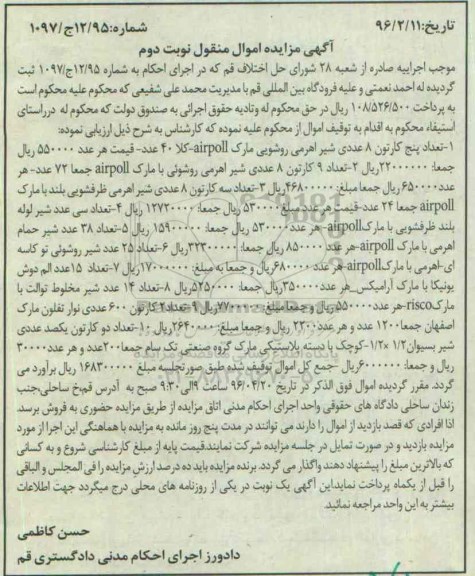 تاریخ:۹۶/۲/۱۱ شماره:۱۲/۹۵ج/۱۰۹۷
آگهی مزایده اموال منقول نوبت دوم
موجب اجراییه صادره از شعبه ۲۸ شورای حل اختلاف قم که در اجرای احکام به شماره ۱۲/۹۵ج/۱۰۹۷ ثبت
گردیده له احمد نعمتی و علیه فرودگاه بین المللی قم با مدیریت محمد علی شفیعی که محکوم علیه محکوم است
به پرداخت ۱۰۸/۵۲۶/۵۰۰ ریال در حق محکوم له وتادیه حقوق اجرائی به صندوق دولت که محکوم له درراستای
استیفاء محکوم به اقدام به توقیف اموال از محکوم علیه نموده که کارشناس به شرح ذیل ارزیابی نموده:
۱-تعداد پنج کارتون ۸ عددی شیر اهرمی روشویی مارک airpoll-کلا ۴۰ عدد- قیمت هر عدد ۵۵۰۰۰۰ ریال
جمعا: ۲۲۰۰۰۰۰۰ریال ۲-تعداد ۹ کارتون ۸ عددی شیر اهرمی روشوئی با مارک airpoll جمعا ۷۲ عدد- هر
عدد۶۵۰۰۰۰ریال جمعا مبلغ:۴۶۸۰۰۰۰۰ریال ۳-تعداد سه کارتون ۸ عددی شیر اهرمی ظرفشویی بلند با مارک
airpoll جمعا ۲۴ عدد-قیمت هر عدد-مبلغ ۵۳۰۰۰۰ ریال جمعا: ۱۲۷۲۰۰۰۰ ریال ۴-تعداد سی عدد شیر لوله
بلند ظرفشویی با مارکairpoll- هر عدد ۵۳۰۰۰۰ ریال جمعا: ۱۵۹۰۰۰۰۰ ریال ۵-تعداد ۳۸ عدد شیر حمام
اهرمی با مارک airpoll-هر عدد ۸۵۰۰۰۰ ریال جمعا: ۳۲۳۰۰۰۰۰ریال ۶-تعداد ۲۵ عدد شیر روشوئی تو کاسه
ای-اهرمی با مارکairpoll-هر عدد ۶۸۰۰۰۰ریال و جمعا به مبلغ: ۱۷۰۰۰۰۰۰ریال ۷-تعداد ۱۵عدد الم دوش
یونیکا با مارک آرامیکس_هر عدد۳۵۰۰۰۰ریال جمعا: ۵۲۵۰۰۰۰ریال ۸-تعداد ۱۴ عدد شیر مخلوط توالت با
مارکrisco-هر عدد۵۵۰۰۰۰ریال و جمعا مبلغ: ۷۷۰۰۰۰۰ریال ۹-تعداد ۲ کارتون ۶۰۰ عددی نوار تفلون مارک
اصفهان جمعا۱۲۰۰ عدد و هر عدد۲۲۰۰ ریال و جمعا مبلغ:۲۶۴۰۰۰۰ریال ۱۰-تعداد دو کارتون یکصد عددی
شیر بسیوان۱/۲ *۱/۲-کوچک با دسته پلاستیکی مارک گروه صنعتی تک سام جمعا۲۰۰عدد و هر عدد۳۰۰۰۰
ریال و جمعا: ۶۰۰۰۰۰۰ریال -جمع کل اموال توقیف شده طبق صورتجلسه مبلغ ۱۶۸۳۰۰۰۰۰ ریال برآورد می
گردد. مقرر گردیده اموال فوق الذکر در تاریخ ۹۶/۰۴/۲۰ ساعت ۹الی۹:۳۰ صبح به آدرس قم،خ ساحلی،جنب
زندان ساحلی دادگاه های حقوقی واحد اجرای احکام مدنی اتاق مزایده از طریق مزایده حضوری به فروش برسد.
اذا افرادی که قصد بازدید از اموال را دارند می توانند در مدت پنج روز مانده به مزایده با هماهنگی این اجرا از مورد
مزایده بازدید و در صورت تمایل در جلسه مزایده شرکت نمایند.قیمت پایه از مبلغ کارشناسی شروع و به کسانی
که بالاترین مبلغ را پیشنهاد دهند واگذار می گردد. برنده مزایده باید ده درصد ارزش مزایده را فی المجلس و الباقی
را قبل از یکماه پرداخت نمایداین آگهی یک نوبت در یکی از روزنامه های محلی درج میگردد جهت اطلاعات
بیشتر به این واحد مراجعه نمائید.
حسن کاظمی
دادورز اجرای احکام مدنی دادگستری قم